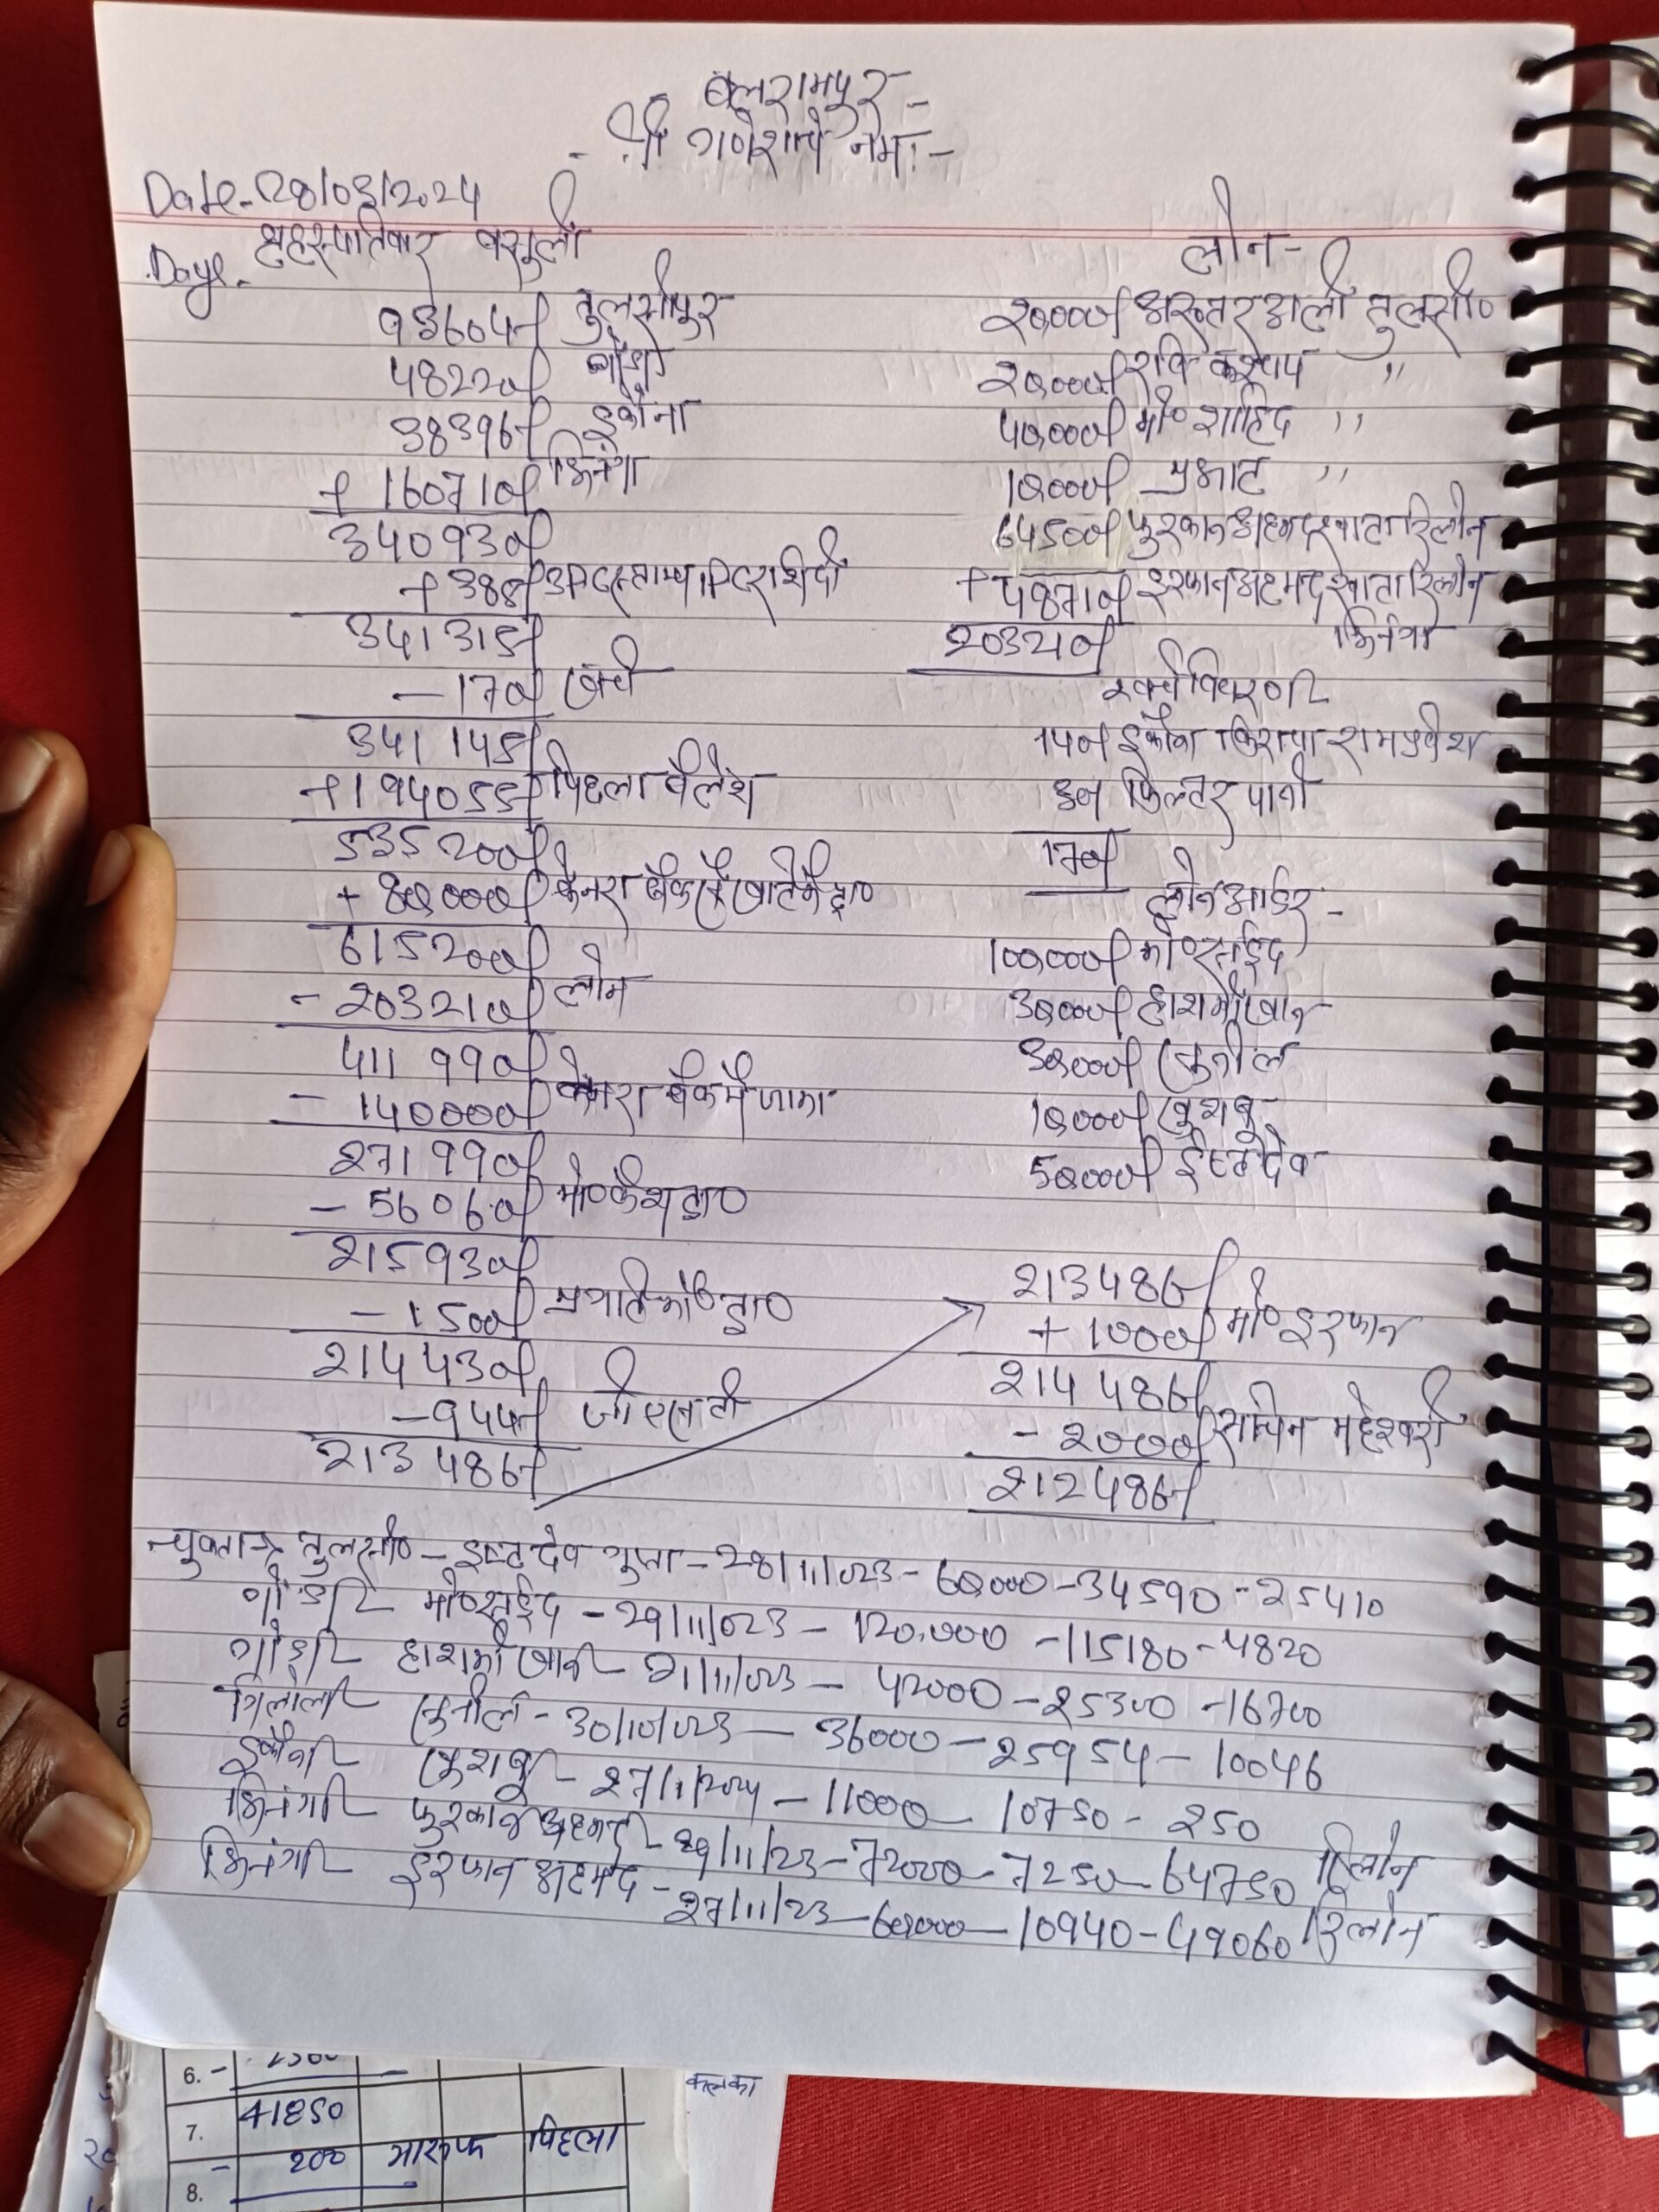 बलरामपुर -
- श्री गणेशाये नमः -
Date - 28/03/2024
Daye - बृहस्पतिवार वसूली
93604/- तुलसीपुर
48220/- गोंडा
38396/- इकौना
+ 160710/- भिनगा
340930/-
+ 385/-
341315/-
- 170/- खर्च
341145/-
+ 194055/- पिछला बैलेंश
535200/-
+ 80,000/- केनरा बैंक के खाते से द्वा०
615200/-
- 203210/- लोन
411990/-
- 140000/- केनरा बैंक में जमा
271990/-
- 56060/- मो० कैश द्वा०
215930/-
- 1500/- प्रगति को० द्वा०
214430/-
- 944/- जीएसटी
213486/-
लोन -
20,000/- अख्तर अली तुलसी०
20,000/- रवि कश्यप "
40,000/- मो० शाहिद "
10,000/- प्रभात "
64500/- फुरकान अहमद खाता रिलोन
+ 48710/- इरफान अहमद खाता रिलोन
203210/- भिनगा
खर्च विवरण
140/- इकौना किराया रामप्रवेश
30/- फिल्टर पानी
170/-
लोन आर्डर -
100,000/- मो० सईद
30,000/- हाशमी खान
30,000/- सुनील
10,000/- खुशबू
50,000/- ईष्टदेव
213486/-
+ 1000/- मो० इरफान
214486/-
- 2000/- सचिन महेश्वरी
212486/-
चुक्ता - तुलसी० - इष्टदेव गुप्ता - 28/11/023 - 60,000 - 34590 - 25410
गोंडा - मो० सईद - 29/11/023 - 120,000 - 115180 - 4820
गोंडा - हाशमी खान - 21/11/023 - 42000 - 25300 - 16700
गिलौला - सुनील - 30/10/023 - 36000 - 25954 - 10046
इकौना - खुशबू - 27/1/2024 - 11000 - 10750 - 250
भिनगा - फुरकान अहमद - 29/11/23 - 72000 - 7250 - 64750 रिलोन
भिनगा - इरफान अहमद - 27/11/23 - 60,000 - 10940 - 49060 रिलोन
6. -
7. 41850
कलका
8. - 200 मारुफ पिछला